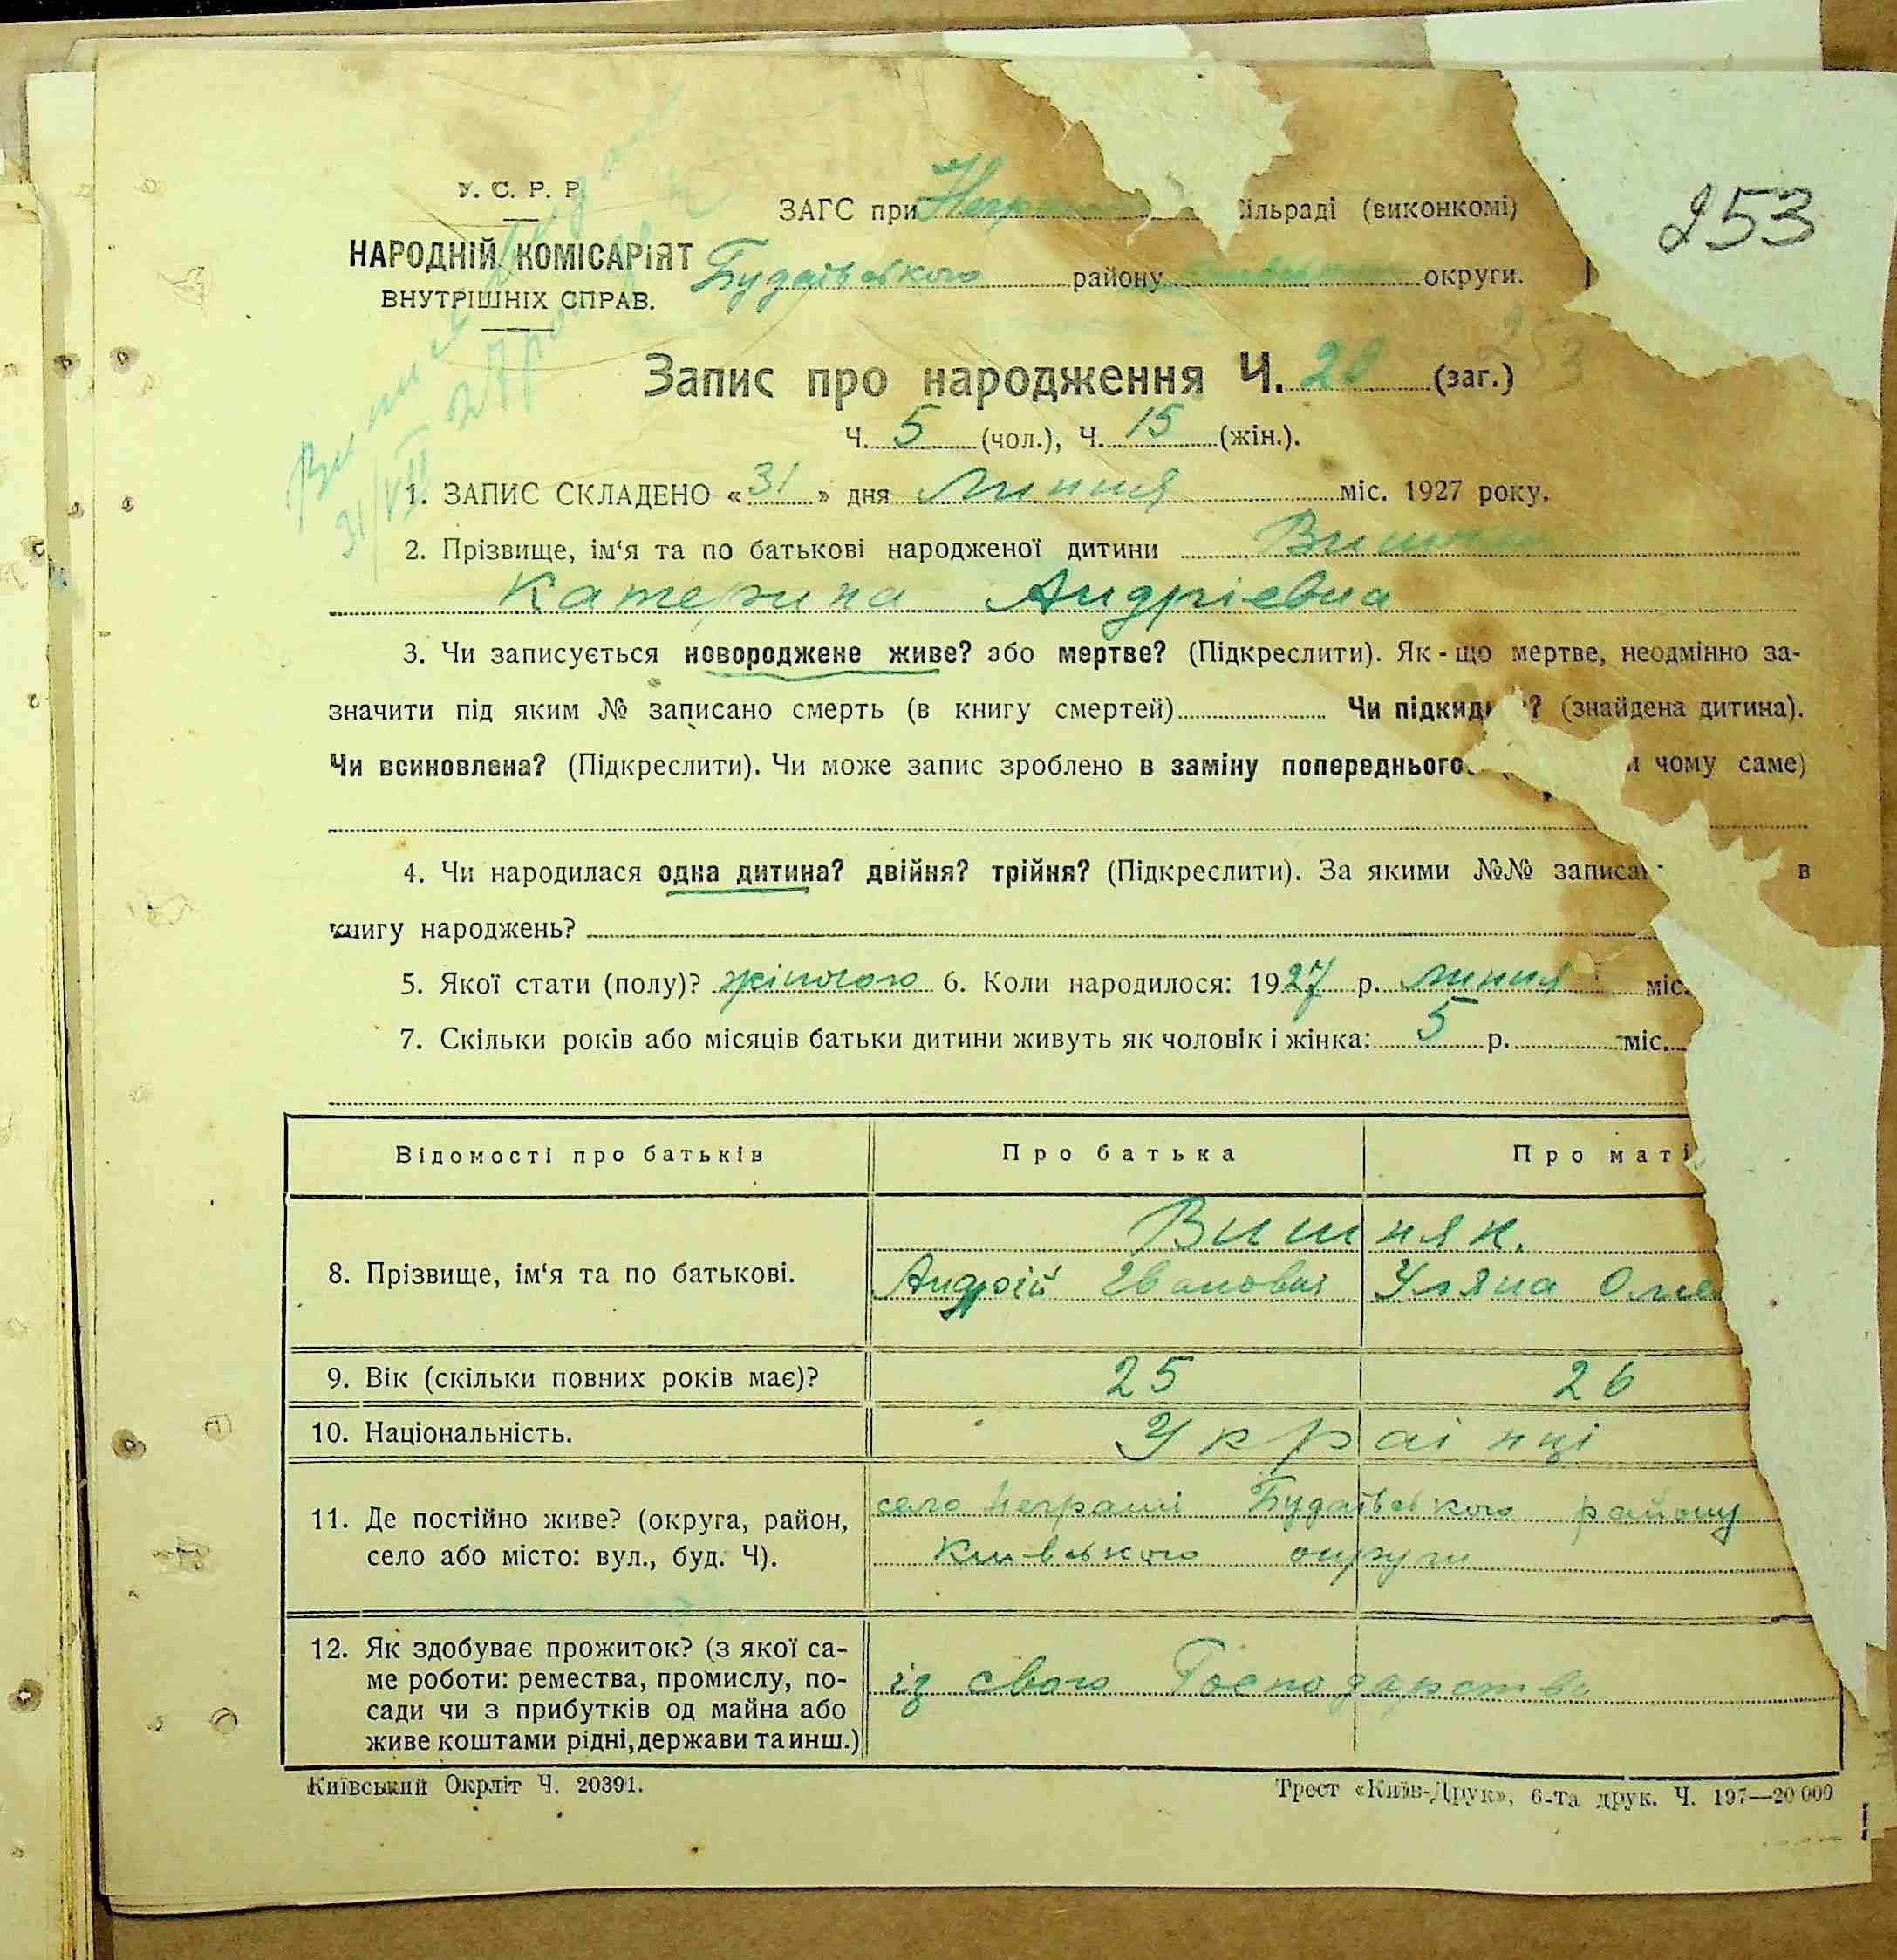 253
У. С. Р. Р.
НАРОДНІЙ КОМІСАРІЯТ
ВНУТРІШНІХ СПРАВ.
ЗАГС при сільраді (виконкомі)
Будаївського району округи.
253
Запис про народження Ч. 20 (заг.)
Ч. 5 (чол.), Ч. 15 (жін.).
31/VII 27 р
1. ЗАПИС СКЛАДЕНО « 31 » дня Липня міс. 1927 року.
2. Прізвище, ім‘я та по батькові народженої дитини
Катерина Андріевна
3. Чи записується новороджене живе? або мертве? (Підкреслити). Як-що мертве, неодмінно за-
значити під яким № записано смерть (в книгу смертей) Чи (знайдена дитина).
Чи всиновлена? (Підкреслити). Чи може запис зроблено в заміну попереднього. чому саме)
4. Чи народилася одна дитина? двійня? трійня? (Підкреслити). За якими №№ в
книгу народжень?
5. Якої стати (полу)? жіночого 6. Коли народилося: 1927 р. липня міс.
7. Скільки років або місяців батьки дитини живуть як чоловік і жінка: 5 р. міс.
Відомості про батьків
Про батька
Про маті
8. Прізвище, ім‘я та по батькові.
Вишняк.
Андрій Іванович Уляна
9. Вік (скільки повних років має)?
25 26
10. Національність.
Украінці
11. Де постійно живе? (округа, район,
село або місто: вул., буд. Ч).
село Неграші Будаївського району
Київського округи
12. Як здобуває прожиток? (з якої са-
ме роботи: ремества, промислу, по-
сади чи з прибутків од майна або
живе коштами рідні, держави та инш.)
із свого Господарства
Київський Окрліт Ч. 20391.
Трест «Київ-Друк», 6-та друк. Ч. 197—20 000